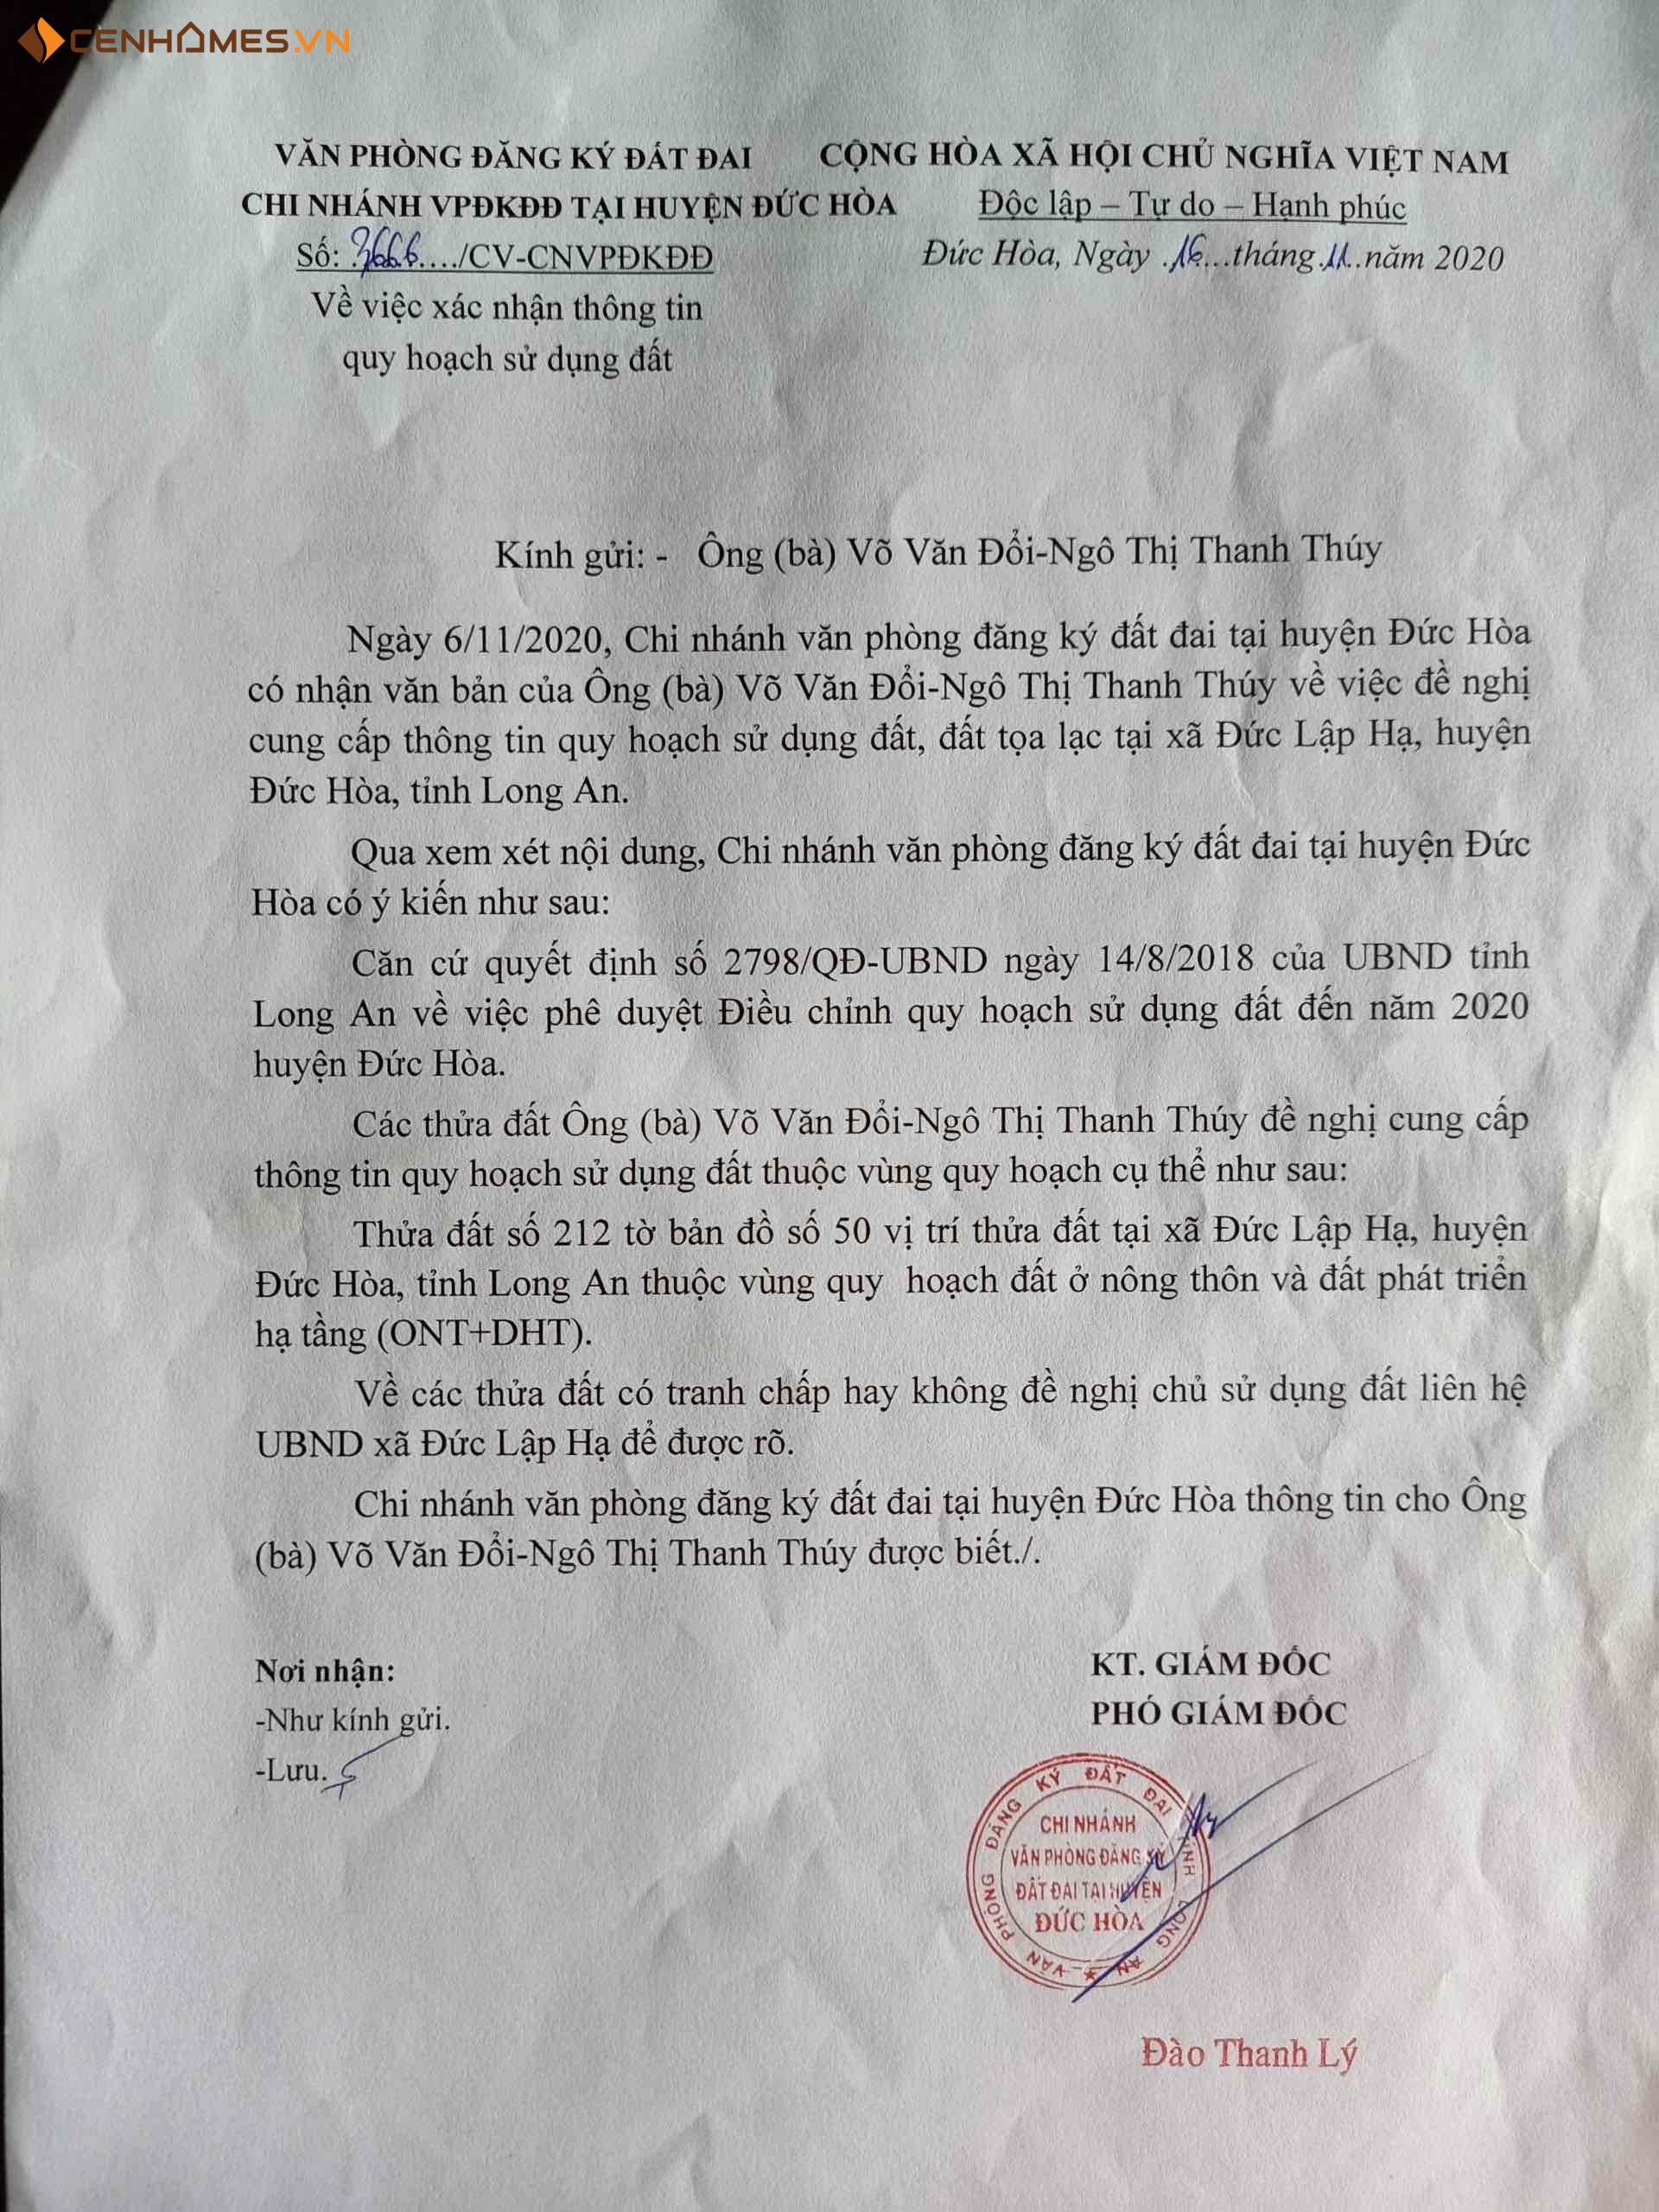 CENHOMES.VN
VĂN PHÒNG ĐĂNG KÝ ĐẤT ĐAI
CHI NHÁNH VPĐKĐĐ TẠI HUYỆN ĐỨC HÒA
Số: 3666..../CV-CNVPĐKĐĐ
Về việc xác nhận thông tin
quy hoạch sử dụng đất
CỘNG HÒA XÃ HỘI CHỦ NGHĨA VIỆT NAM
Độc lập – Tự do – Hạnh phúc
Đức Hòa, Ngày .16...tháng.11..năm 2020
Kính gửi: - Ông (bà) Võ Văn Đổi-Ngô Thị Thanh Thúy
Ngày 6/11/2020, Chi nhánh văn phòng đăng ký đất đai tại huyện Đức Hòa
có nhận văn bản của Ông (bà) Võ Văn Đổi-Ngô Thị Thanh Thúy về việc đề nghị
cung cấp thông tin quy hoạch sử dụng đất, đất tọa lạc tại xã Đức Lập Hạ, huyện
Đức Hòa, tỉnh Long An.
Qua xem xét nội dung, Chi nhánh văn phòng đăng ký đất đai tại huyện Đức
Hòa có ý kiến như sau:
Căn cứ quyết định số 2798/QĐ-UBND ngày 14/8/2018 của UBND tỉnh
Long An về việc phê duyệt Điều chỉnh quy hoạch sử dụng đất đến năm 2020
huyện Đức Hòa.
Các thửa đất Ông (bà) Võ Văn Đổi-Ngô Thị Thanh Thúy đề nghị cung cấp
thông tin quy hoạch sử dụng đất thuộc vùng quy hoạch cụ thể như sau:
Thửa đất số 212 tờ bản đồ số 50 vị trí thửa đất tại xã Đức Lập Hạ, huyện
Đức Hòa, tỉnh Long An thuộc vùng quy hoạch đất ở nông thôn và đất phát triển
hạ tầng (ONT+DHT).
Về các thửa đất có tranh chấp hay không đề nghị chủ sử dụng đất liên hệ
UBND xã Đức Lập Hạ để được rõ.
Chi nhánh văn phòng đăng ký đất đai tại huyện Đức Hòa thông tin cho Ông
(bà) Võ Văn Đổi-Ngô Thị Thanh Thúy được biết./.
Nơi nhận:
-Như kính gửi.
-Lưu.
KT. GIÁM ĐỐC
PHÓ GIÁM ĐỐC
VĂN PHÒNG ĐĂNG KÝ ĐẤT ĐAI TỈNH LONG AN
CHI NHÁNH
VĂN PHÒNG ĐĂNG KÝ
ĐẤT ĐAI TẠI HUYỆN
ĐỨC HÒA
Đào Thanh Lý